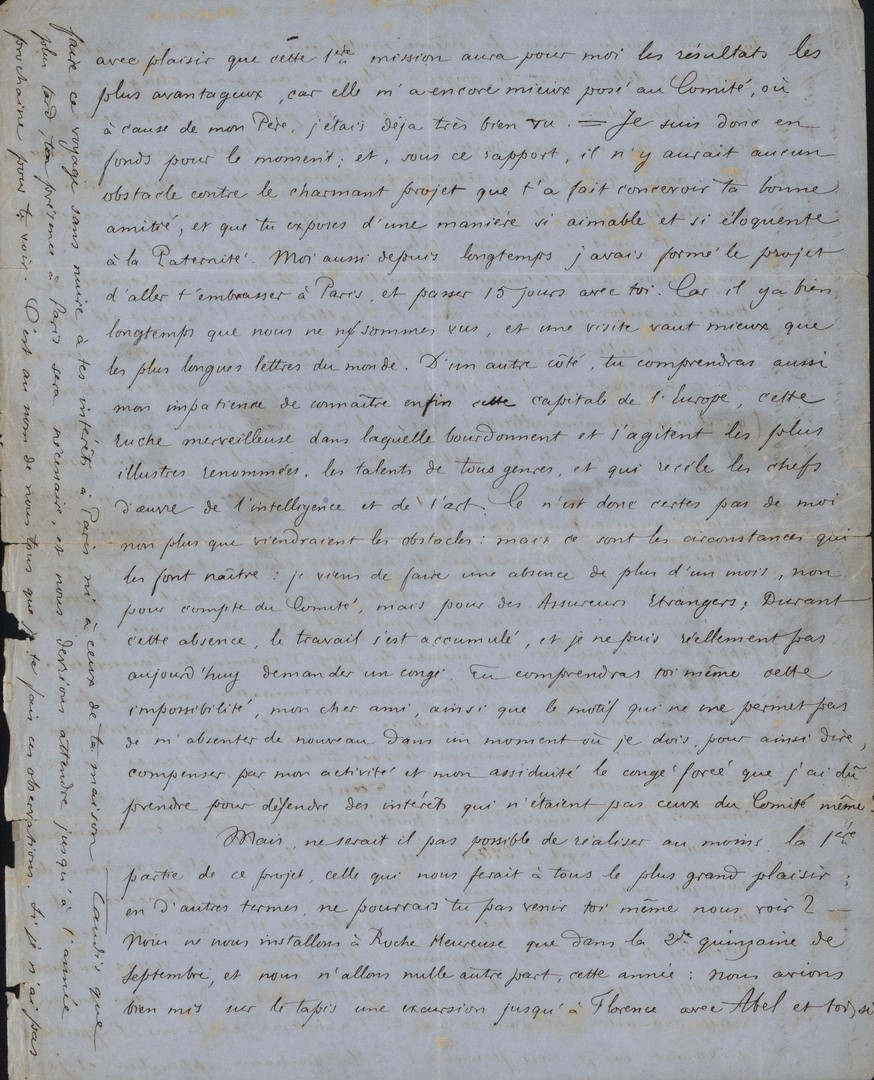 avec plaisir que cette 1ère mission aura pour moi les résultats les
plus avantageux, car elle m'a encore mieux posé au Comité, où
à cause de mon Père, j'étais déja très bien vu. = Je suis donc en
fonds pour le moment; et, sous ce rapport, il n'y aurait aucun
obstacle contre le charmant projet que t'a fait concevoir ta bonne
amitié, et que tu exposes d'une manière si aimable et si éloquente
à la Paternité. Moi aussi depuis longtemps j'avais formé le projet
d'aller t'embrasser à Paris, et passer 15 jours avec toi. Car il y a bien
longtemps que nous ne ns sommes vus, et une visite vaut mieux que
les plus longues lettres du monde. D'un autre côté, tu comprendras aussi
mon impatience de connaître enfin cette capitale de l'Europe, cette
ruche merveilleuse dans laquelle bourdonnent et s'agitent les plus
illustres renommées, les talents de tous genres, et qui recèle les chefs
d'œuvre de l'intelligence et de l'art. Ce n'est donc certes pas de moi
non plus que viendraient les obstacles: mais ce sont les circonstances qui
les font naître: je viens de faire une absence de plus d'un mois, non
pour compte du Comité, mais pour des Assureurs Etrangers; Durant
cette absence, le travail s'est accumulé, et je ne puis réellement pas
aujourd'huy demander un congé. Tu comprendras toi même cette
impossibilité, mon cher ami, ainsi que le motif qui ne me permet pas
de m'absenter de nouveau dans un moment où je dois, pour ainsi dire,
compenser par mon activité et mon assiduité le congé forcé que j'ai dû
prendre pour défendre des intérêts qui n'étaient pas ceux du Comité même.
Mais, ne serait il pas possible de réaliser au moins la 1ère
partie de ce projet, celle qui nous ferait à tous le plus grand plaisir;
en d'autres termes, ne pourrais tu pas venir toi même nous voir? —
Nous ne nous installons à Roche Heureuse que dans la 2de quinzaine de
Septembre, et nous n'allons nulle autre part, cette année: nous avions
bien mis sur le tapis une excursion jusqu'à Florence avec Abel et toi, si
faire ce voyage sans nuire à tes intérêts à Paris ni à ceux de ta maison Tandis que
plus tard, ta présence à Paris sera nécessaire, et nous devrions attendre jusqu'à l'année
prochaine pour te voir. C'est au nom de nous tous que je te fais ces observations. Si je n'ai pas